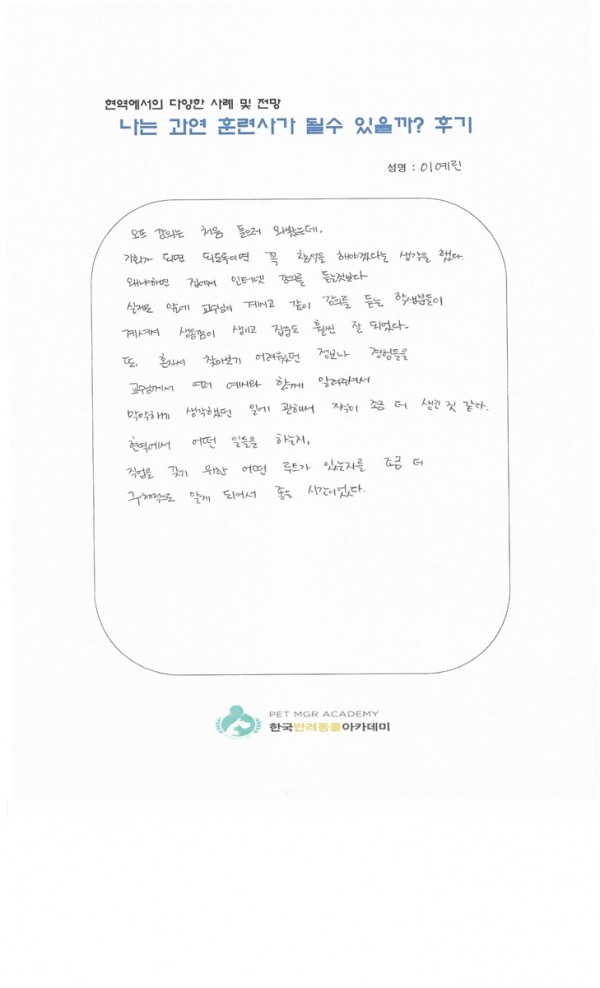 현역에서의 다양한 사례 및 전망
나는 과연 훈련사가 될수 있을까? 후기
성명 : 이예린
오프 강의는 처음 들으러 와봤는데,
기회가 되면 되도록이면 꼭 참석을 해야겠다는 생각을 했다.
왜냐하면 집에서 인터넷 강의를 듣는것보다
실제로 앞에 교수님이 계시고 같이 강의를 듣는 학생분들이
계셔서 생동감이 생기고 집중도 훨씬 잘 되었다.
또, 혼자서 찾아보기 어려웠던 정보나 경험들을
교수님께서 여러 예시와 함께 알려주셔서
막막하게 생각했던 일에 관해서 자신이 조금 더 생긴 것 같다.
현역에서 어떤 일들을 하는지,
직업을 갖기 위한 어떤 루트가 있는지를 조금 더
구체적으로 알게 되어서 좋은 시간이었다.
PET MGR ACADEMY
한국반려동물아카데미